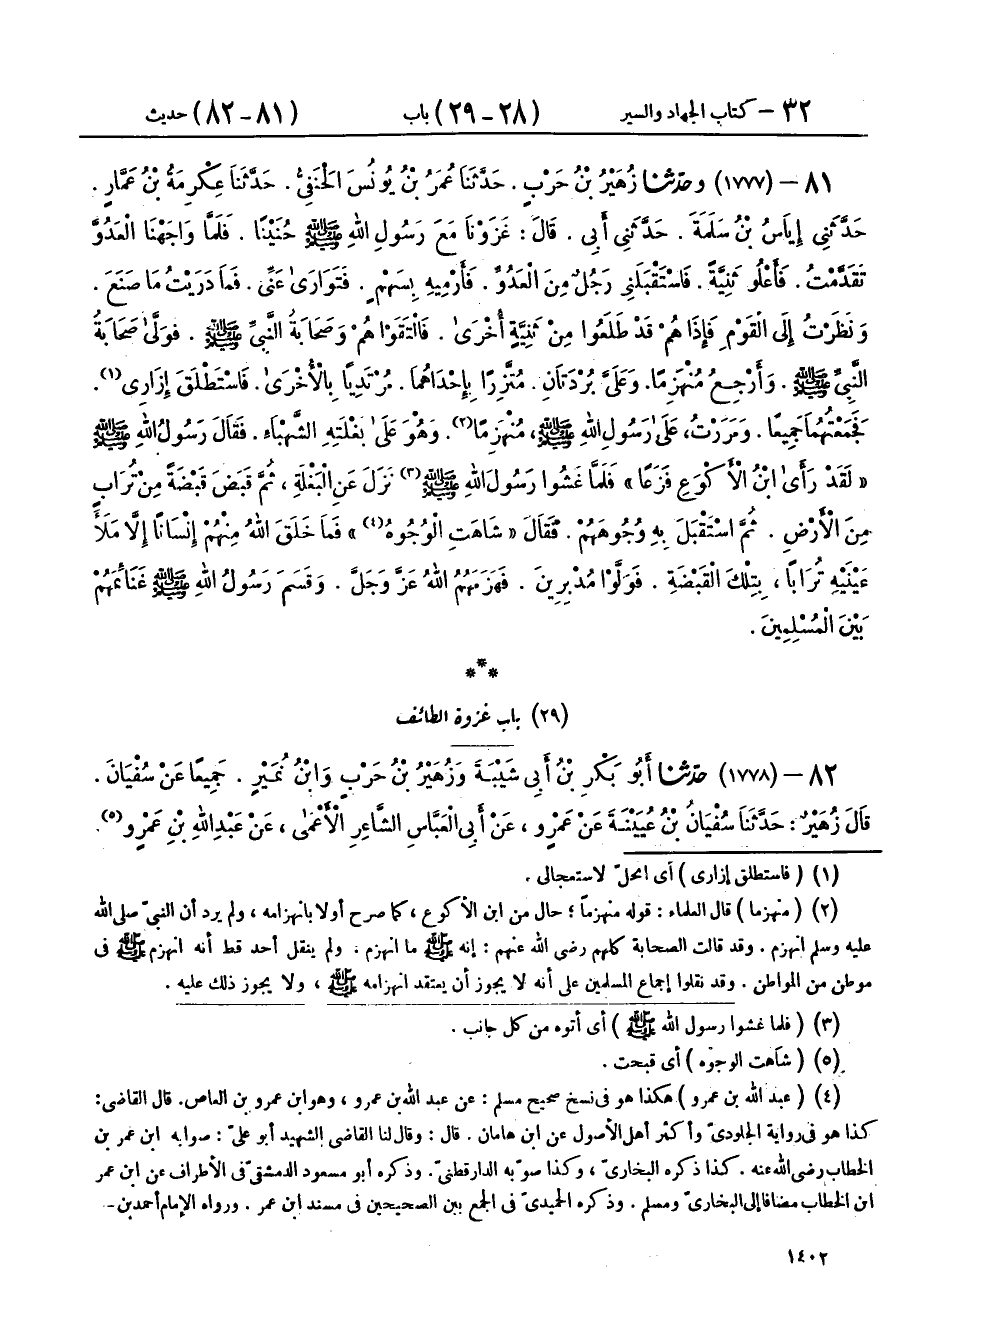 ٣٢ – كتاب الجهاد والسير (٢٨-٢٩) باب (٨١-٨٢) حديث
٨١ – (١٧٧٧) وحدّثنا زُهَيْرُ بْنُ حَرْبٍ . حَدَّثَنَا عُمَرُ بْنُ يُونُسَ الْحَنَفِيُّ . حَدَّثَنَا عِكْرِمَةُ بْنُ عَمَّارٍ .
حَدَّثَنِي إِيَاسُ بْنُ سَلَمَةَ . حَدَّثَنِي أَبِي . قَالَ : غَزَوْنَا مَعَ رَسُولِ اللهِ ﷺ حُنَيْنًا . فَلَمَّا وَاجَهْنَا الْعَدُوَّ
تَقَدَّمْتُ . فَأَعْلُو ثَنِيَّةً . فَاسْتَقْبَلَنِي رَجُلٌ مِنَ الْعَدُوِّ . فَأَرْمِيهِ بِسَهْمٍ . فَتَوَارَىٰ عَنِّي . فَمَا دَرَيْتُ مَا صَنَعَ .
وَنَظَرْتُ إِلَى الْقَوْمِ فَإِذَا هُمْ قَدْ طَلَعُوا مِنْ ثَنِيَّةٍ أُخْرَىٰ . فَالْتَقَوْا هُمْ وَصَحَابَةُ النَّبِيِّ ﷺ . فَوَلَّىٰ صَحَابَةُ
النَّبِيِّ ﷺ . وَأَرْجِعُ مُنْهَزِمًا. وَعَلَيَّ بُرْدَتَانِ. مُتَّزِرًا بِإِحْدَاهُمَا. مُرْتَدِيًا بِالْأُخْرَىٰ. فَاسْتَطْلَقَ إِزَارِي(١).
فَجَمَعْتُهُمَا جَمِيعًا . وَمَرَرْتُ، عَلَىٰ رَسُولِ اللهِ ﷺ، مُنْهَزِمًا(٢). وَهُوَ عَلَىٰ بَغْلَتِهِ الشَّهْبَاءِ . فَقَالَ رَسُولُ اللهِ ﷺ
« لَقَدْ رَأَىٰ ابْنُ الْأَكْوَعِ فَزَعًا » فَلَمَّا غَشُوا رَسُولَ اللهِ ﷺ(٣) نَزَلَ عَنِ الْبَغْلَةِ ، ثُمَّ قَبَضَ قَبْضَةً مِنْ تُرَابٍ
مِنَ الْأَرْضِ . ثُمَّ اسْتَقْبَلَ بِهِ وُجُوهَهُمْ . فَقَالَ « شَاهَتِ الْوُجُوهُ(٤) » فَمَا خَلَقَ اللهُ مِنْهُمْ إِنْسَانًا إِلَّا مَلَأَ
عَيْنَيْهِ تُرَابًا ، بِتِلْكَ الْقَبْضَةِ . فَوَلَّوْا مُدْبِرِينَ . فَهَزَمَهُمُ اللهُ عَزَّ وَجَلَّ . وَقَسَمَ رَسُولُ اللهِ ﷺ غَنَائِمَهُمْ
بَيْنَ الْمُسْلِمِينَ .
***
(٢٩) باب غزوة الطائف
٨٢ – (١٧٧٨) حدّثنا أَبُو بَكْرِ بْنُ أَبِي شَيْبَةَ وَزُهَيْرُ بْنُ حَرْبٍ وَابْنُ نُمَيْرٍ . جَمِيعًا عَنْ سُفْيَانَ .
قَالَ زُهَيْرٌ : حَدَّثَنَا سُفْيَانُ بْنُ عُيَيْنَةَ عَنْ عَمْرٍو ، عَنْ أَبِي الْعَبَّاسِ الشَّاعِرِ الْأَعْمَىٰ ، عَنْ عَبْدِ اللهِ بْنِ عَمْرٍو(٥).
(١) ( فاستطلق إزارى ) أى انحلّ لاستعجالى .
(٢) ( منهزما ) قال العلماء : قوله منهزماً ؛ حال من ابن الأكوع ، كما صرح أولا بانهزامه ، ولم يرد أن النبيّ صلى الله
عليه وسلم انهزم . وقد قالت الصحابة كلهم رضى الله عنهم : إنه ﷺ ما انهزم . ولم ينقل أحد قط أنه انهزم ﷺ فى
موطن من المواطن . وقد نقلوا إجماع المسلمين على أنه لا يجوز أن يعتقد انهزامه ﷺ ، ولا يجوز ذلك عليه .
(٣) ( فلما غشوا رسول الله ﷺ ) أى أتوه من كل جانب .
(٥) ( شاهت الوجوه ) أى قبحت .
(٤) ( عبد الله بن عمرو ) هكذا هو فى نسخ صحيح مسلم : عن عبد الله بن عمرو ، وهو ابن عمرو بن العاص. قال القاضى:
كذا هو فى رواية الجلودىّ وأكثر أهل الأصول عن ابن ماهان . قال : وقال لنا القاضى الشهيد أبو علىّ : صوابه ابن عمر بن
الخطاب رضى الله عنه . كذا ذكره البخارىّ ، وكذا صوّبه الدارقطنىّ . وذكره أبو مسعود الدمشقىّ فى الأطراف عن ابن عمر
ابن الخطاب مضافا إلى البخارىّ ومسلم . وذكره الحميدىّ فى الجمع بين الصحيحين فى مسند ابن عمر . ورواه الإمام أحمد بن -
١٤٠٢